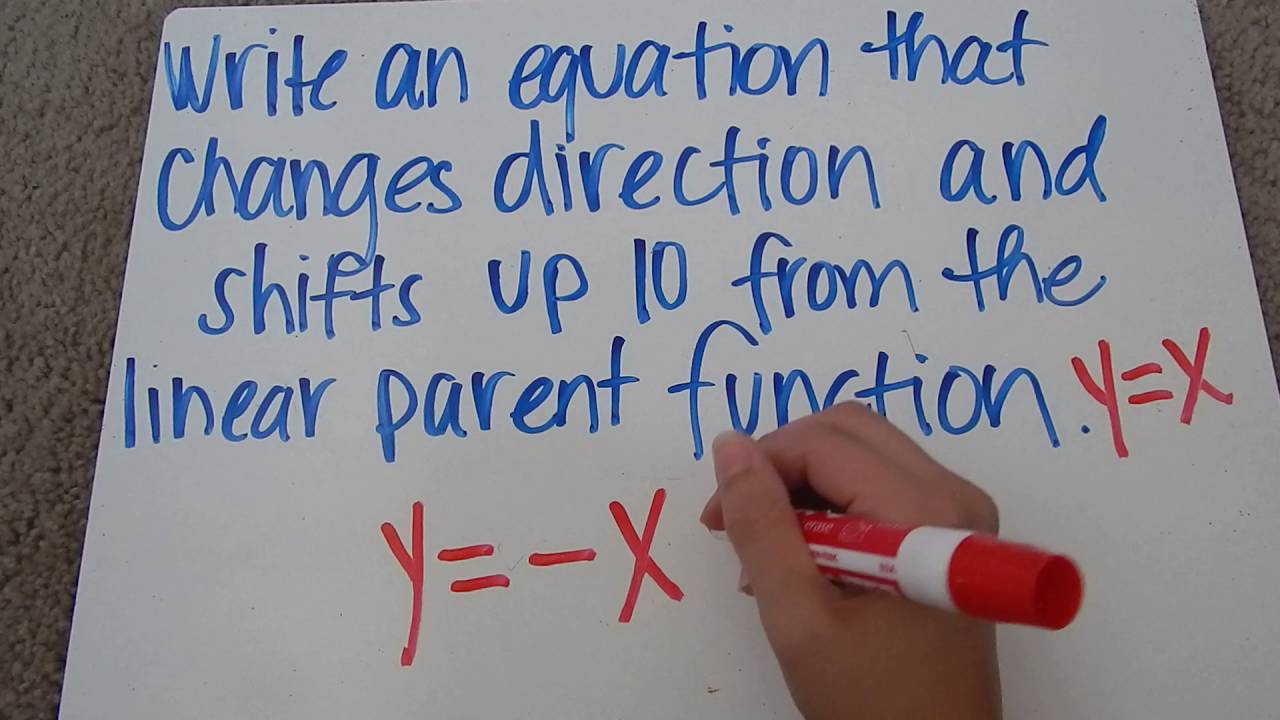 Write an equation that
changes direction and
shifts up 10 from the
linear parent function. y=x
y=-x
erase